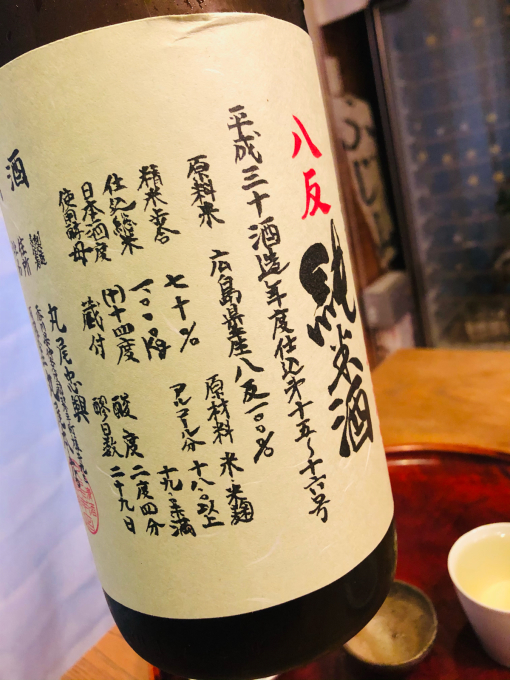 八反 純米酒
平成三十酒造年度仕込第十五〜十六号
原料米 広島県産八反一〇〇%
精米歩合 七十%
仕込総米 一〇〇〇kg
日本酒度 (+)十四度
使用酵母 蔵付
原材料 米・米麹
アルコール分 十八.〇以上
十九.〇未満
酸度 二度四分
醪日数 二十九日
丸尾忠興
酒